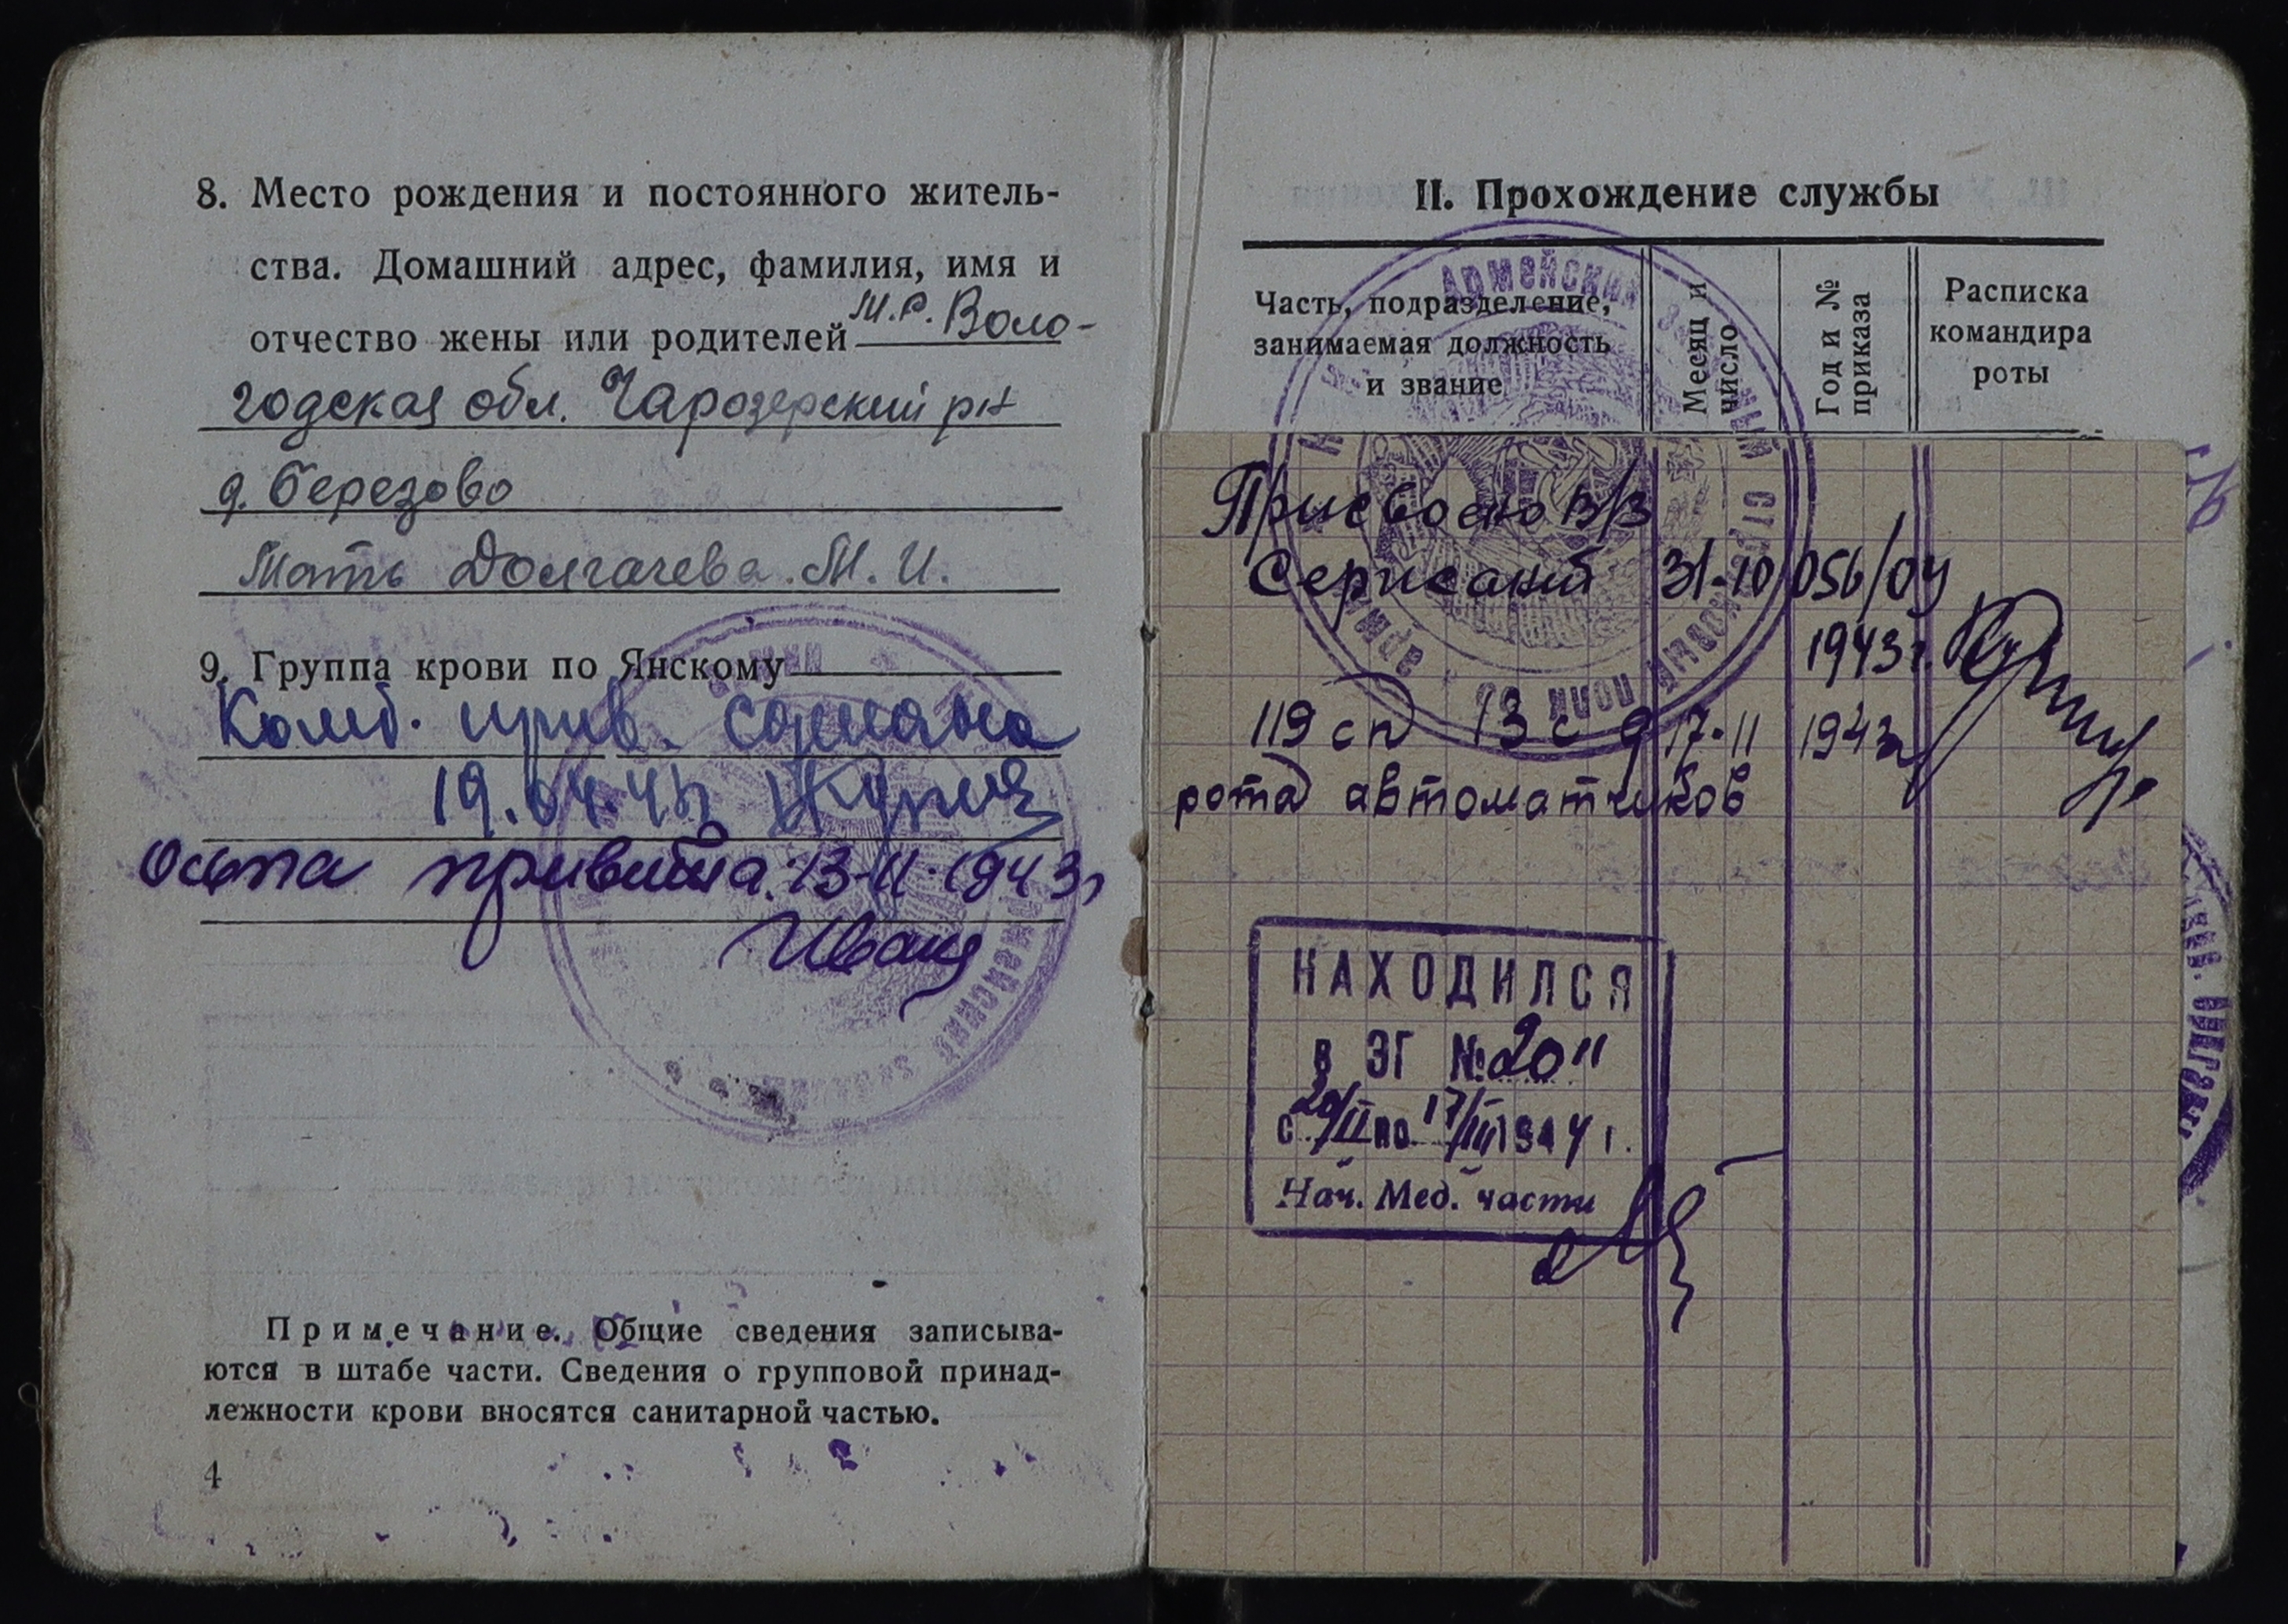 8. Место рождения и постоянного житель-
ства. Домашний адрес, фамилия, имя и
отчество жены или родителей М.Р. Воло-
годская обл. Чарозерский р-н
д. Березово
Мать Долгачева М. И.
9. Группа крови по Янскому
Комб. прив. сделана
19.04.43
Оспа привита 13-11-1943г
Примечание. Общие сведения записыва-
ются в штабе части. Сведения о групповой принад-
лежности крови вносятся санитарной частью.
4
II. Прохождение службы
Часть, подразделение,
занимаемая должность
и звание
Месяц и
число
Год и №
приказа
Расписка
командира
роты
Присвоено в/з
Сержант 31-10 056/04
1943г.
119 сп 13 с д 17-11 1943г
рота автоматчиков
НАХОДИЛСЯ
в ЭГ № 2011
с 20/II по 17/III 1944 г.
Нач. Мед. части